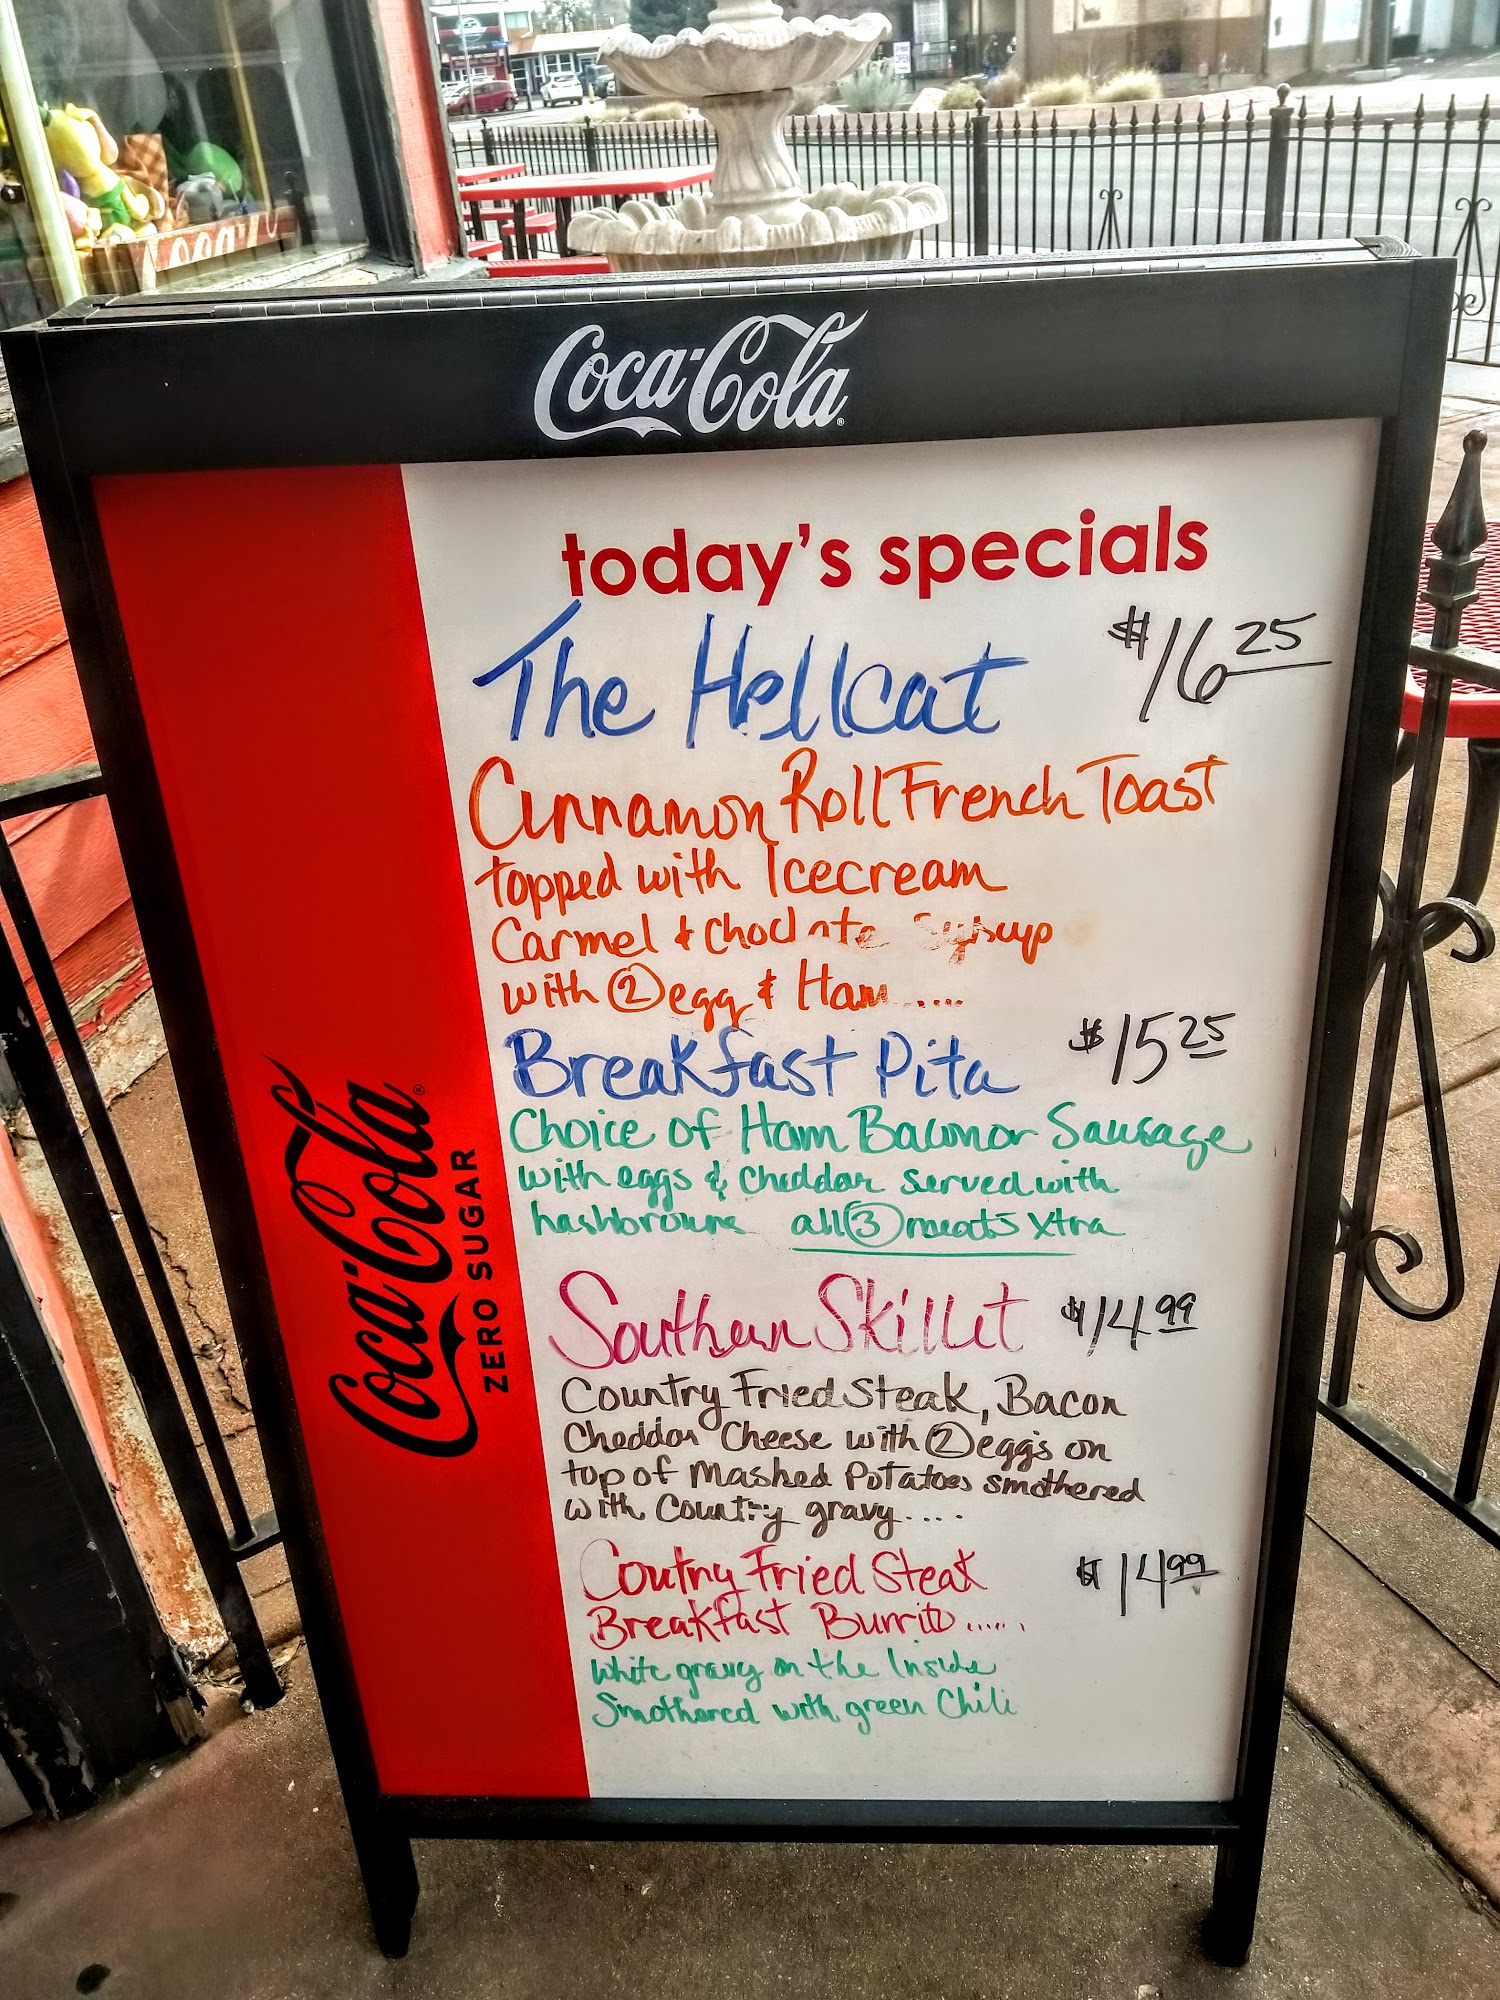 Coca-Cola
today's specials
The Hellcat $16.25
Cinnamon Roll French Toast
topped with Icecream
Carmel & Choclate Syrup
with ② egg & Ham.....
Breakfast Pita $15.25
Choice of Ham Bacon or Sausage
with eggs & cheddar served with
hashbrowns all ③ meats xtra
Southern Skillet $14.99
Country Fried Steak, Bacon
Cheddar Cheese with ② eggs on
top of Mashed Potatoes smothered
with Country gravy....
Coutry Fried Steak $14.99
Breakfast Burrito......
white gravy on the Inside
Smothered with green Chili
Coca-Cola
ZERO SUGAR